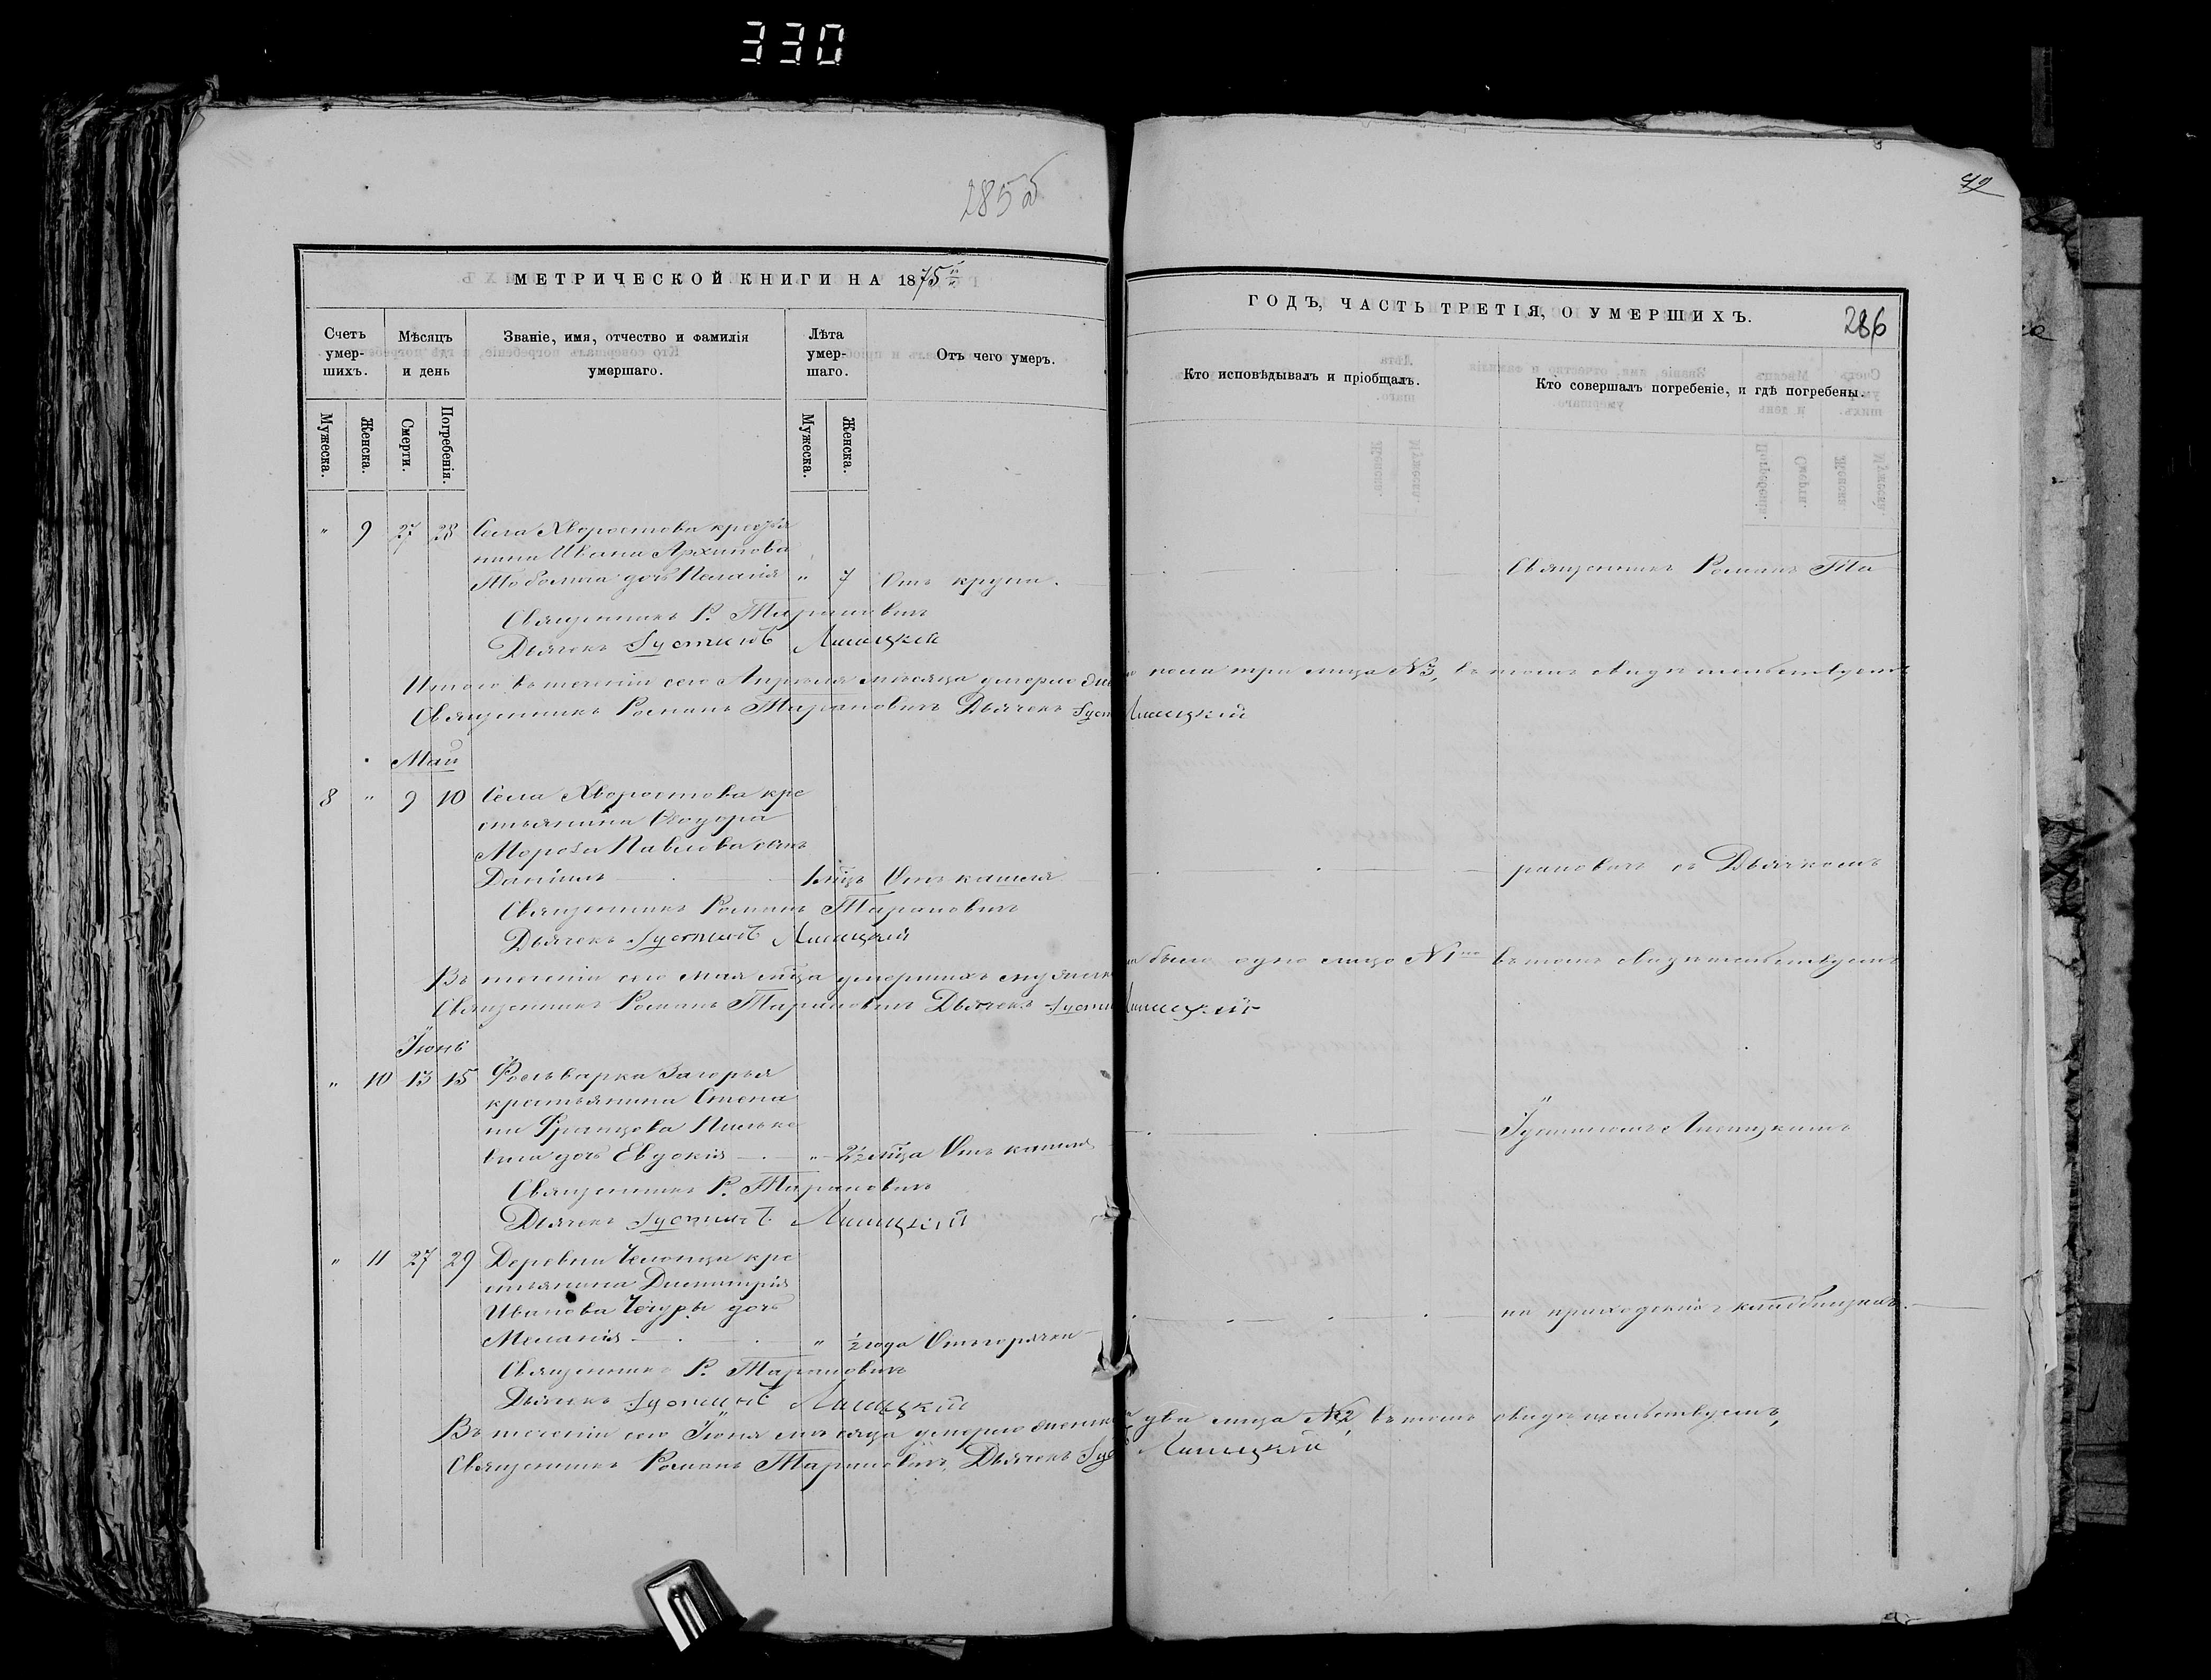 330
285 об
42
МЕТРИЧЕСКОЙ КНИГИ НА 1875й
ГОДЪ, ЧАСТЬ ТРЕТІЯ, О УМЕРШИХЪ.
286
Счетъ умер-шихъ.
Мѣсяцъ и день
Званіе, имя, отчество и фамилія умершаго.
Лѣта умер-шаго.
Отъ чего умеръ.
Кто исповѣдывалъ и пріобщалъ.
Кто совершалъ погребеніе, и гдѣ погребены.
Мужеска.
Женска.
Смерти.
Погребенія.
Мужеска.
Женска.
" 9 27 28 Села Хворостова крестья
нина Ивана Архипова
дочь Пелагія " 7 Отъ крупа.
Священникъ Романъ Та
Священникъ Р. Тарановичъ
Дьячекъ Іустинъ Лисицкій
Итого въ теченіи сего Апрѣля мѣсяца умерло пола три лица №3, въ томъ свидѣтельствуемъ
Священникъ Романъ Тарановичъ Дьячекъ Іуст Лисицкій
Май
8 " 9 10 Села Хворостова кре
стьянина Ѳеодора
Мороза Павлова сынъ
Даніилъ 1 мцъ Отъ кашля
рановичъ съ Дьячкомъ
Священникъ Романъ Тарановичъ
Дьячекъ Іустинъ Лисицкій
Въ теченіи сего мая мца умершихъ было одно лицо №1 въ томъ свидѣтельствуемъ
Священникъ Романъ Тарановичъ Дьячекъ Іусти Лисицкій
Іюнь
" 10 13 15 Фольварка Загорья
крестьянина Степа
на Францова Пильке
вича дочь Евдокія " 2½ мца Отъ кашля
Іустиномъ Лисицкимъ
Священникъ Р. Тарановичъ
Дьячекъ Іустинъ Лисицкій
" 11 27 29 Деревни кре
стьянина Димитрія
Иванова дочь
Меланія " ½ года Отъ горячки
на приходскихъ кладбищахъ.
Священникъ Р. Тарановичъ
Дьячекъ Іустинъ Лисицкій
Въ теченіи сего Іюня мѣсяца умерло женска два лица №2, въ томъ свидѣтельствуемъ,
Священникъ Романъ Тарановичъ, Дьячекъ Іус Лисицкій